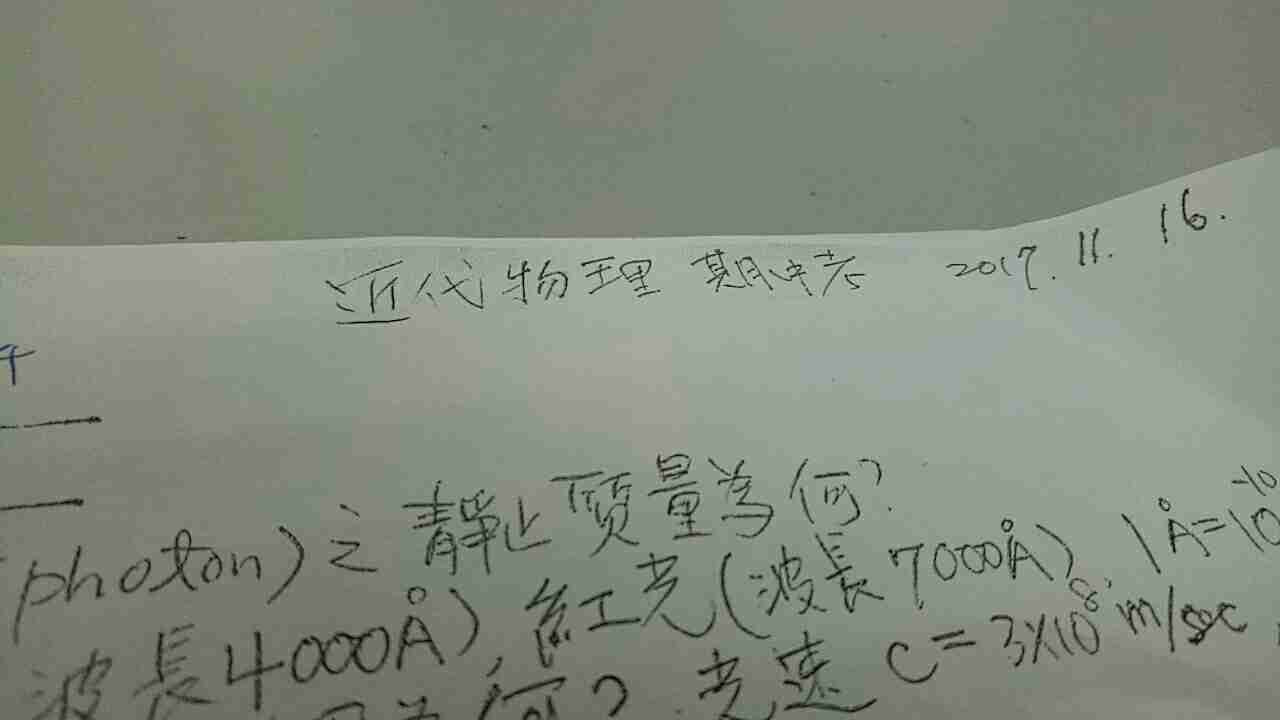 近代物理 期中考 2017.11.16.
(photon)之靜止质量為何?
波長4000Å),紅光(波長7000Å) 1Å=10^-10
為何? 光速 C=3×10^8 m/sec